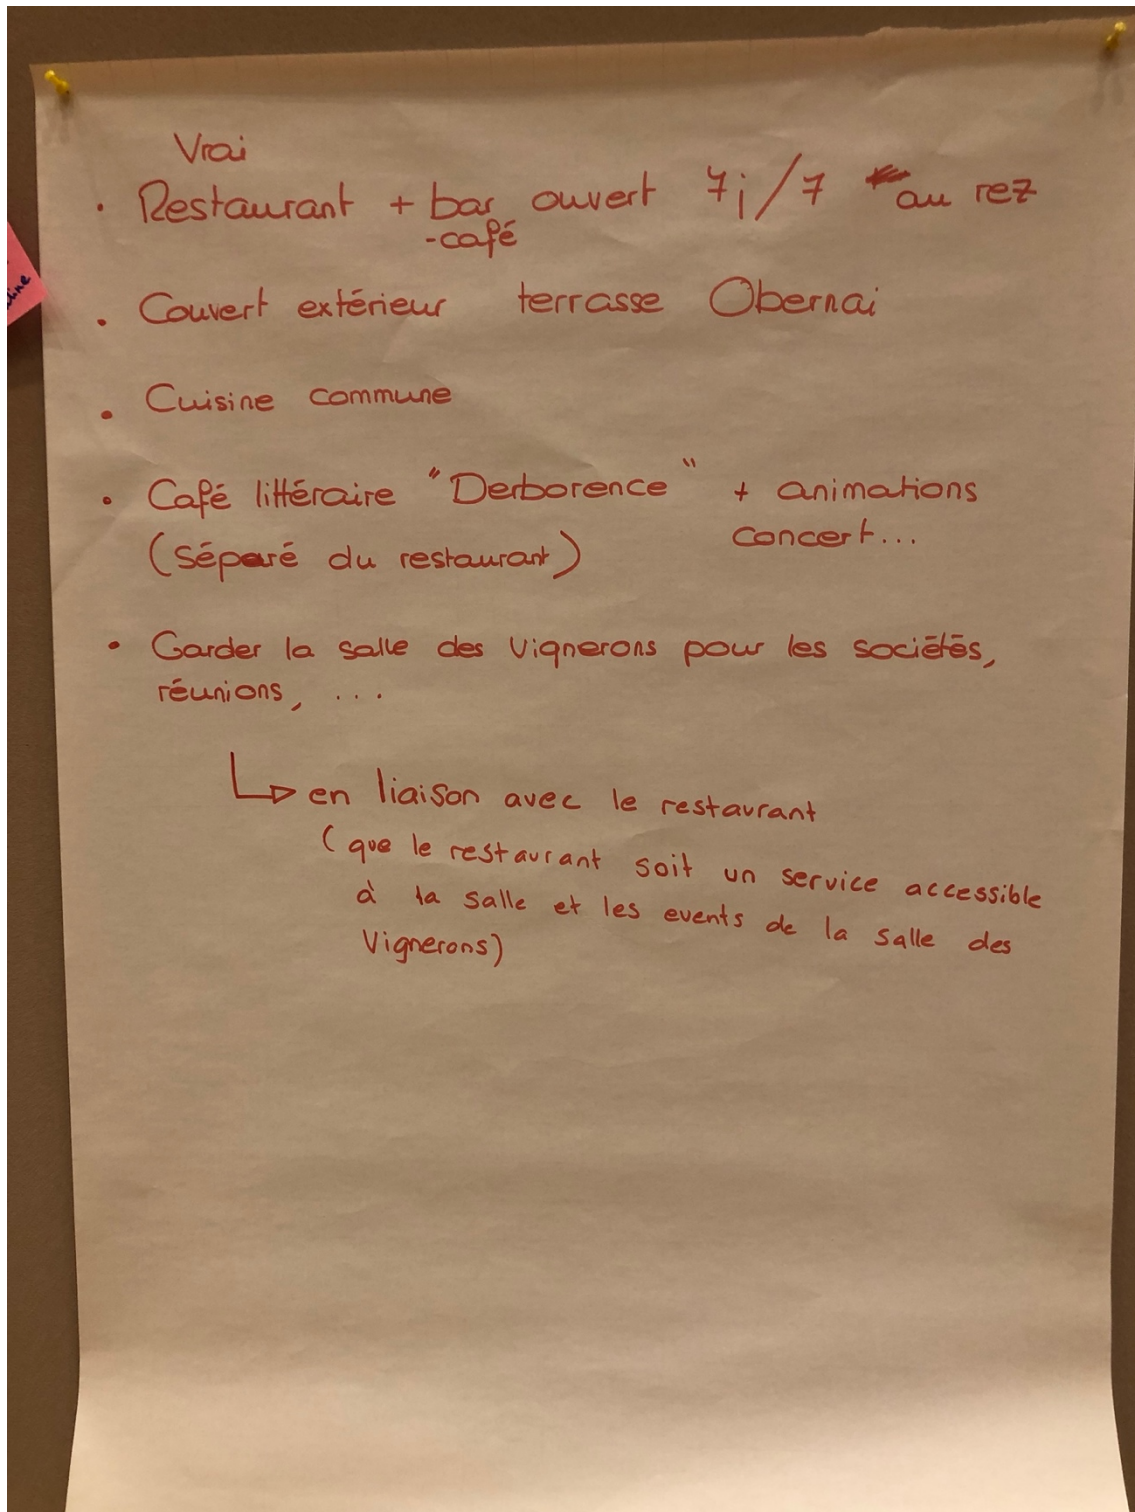 Vrai
• Restaurant + bar ouvert 7j/7 au rez
-café
• Couvert extérieur terrasse Obernai
• Cuisine commune
• Café littéraire "Derborence" + animations
concert...
(séparé du restaurant)
• Garder la salle des Vignerons pour les sociétés,
réunions, ...
↳ en liaison avec le restaurant
(que le restaurant soit un service accessible
à la salle et les events de la salle des
Vignerons)